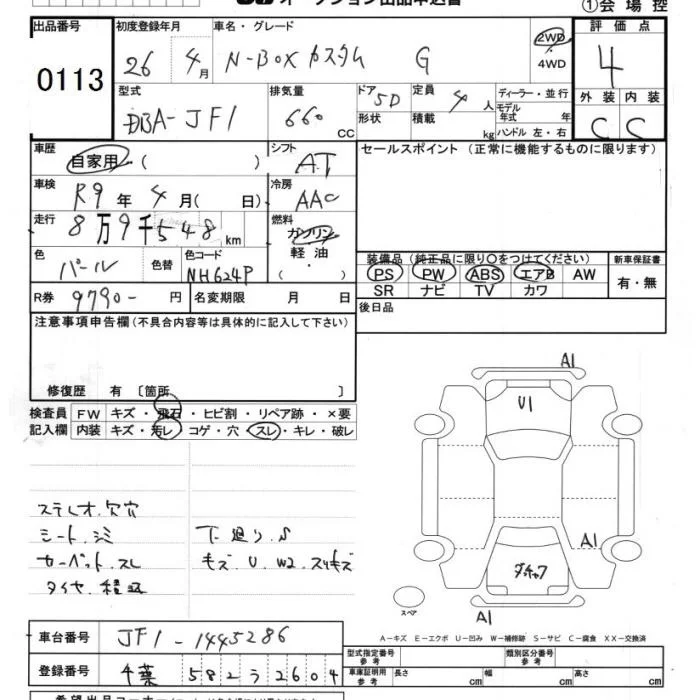 ①会場控
出品番号 初度登録年月 車名・グレード 評価点
0113 26年4月 N-BOX カスタム G 2WD 4WD 4
型式 排気量 ドア 5D 定員 4人 ディーラー・並行 外装 内装
DBA-JF1 660cc 形状 積載 kg モデル年式 年 ハンドル 左・右 C C
車歴 自家用 ( ) シフト AT セールスポイント (正常に機能するものに限ります)
車検 R9年4月( 日) 冷房 AAC
走行 8万9千548km 燃料 ガソリン
軽油・
( )
色 パール 色替 色コード NH624P
装備品 (純正品に限り〇をつけてください) 新車保証書
PS PW ABS エアB AW 有・無
SR ナビ TV カワ
R券 9790-円 名変期限 月 日 後日品
注意事項申告欄(不具合内容等は具体的に記入して下さい)
修復歴 有 〔箇所 〕
検査員 FW キズ・飛石・ヒビ割・リペア跡・×要
記入欄 内装 キズ・汚レ・コゲ・穴・スレ・キレ・破レ
A1
U1
ステレオ.欠穴
シート.シミ 下廻り.S
カーペット.スレ キズ.U.W2.スリキズ
A1
タイヤ.積込
スペア
A1
A-キズ E-エクボ U-凹み W-補修跡 S-サビ C-腐食 XX-交換済
車台番号 JF1-1445286
型式指定番号 参考 類別区分番号 参考
登録番号 千葉 582 う 2604
車庫証明用 参考 長さ cm 幅 cm 高さ cm